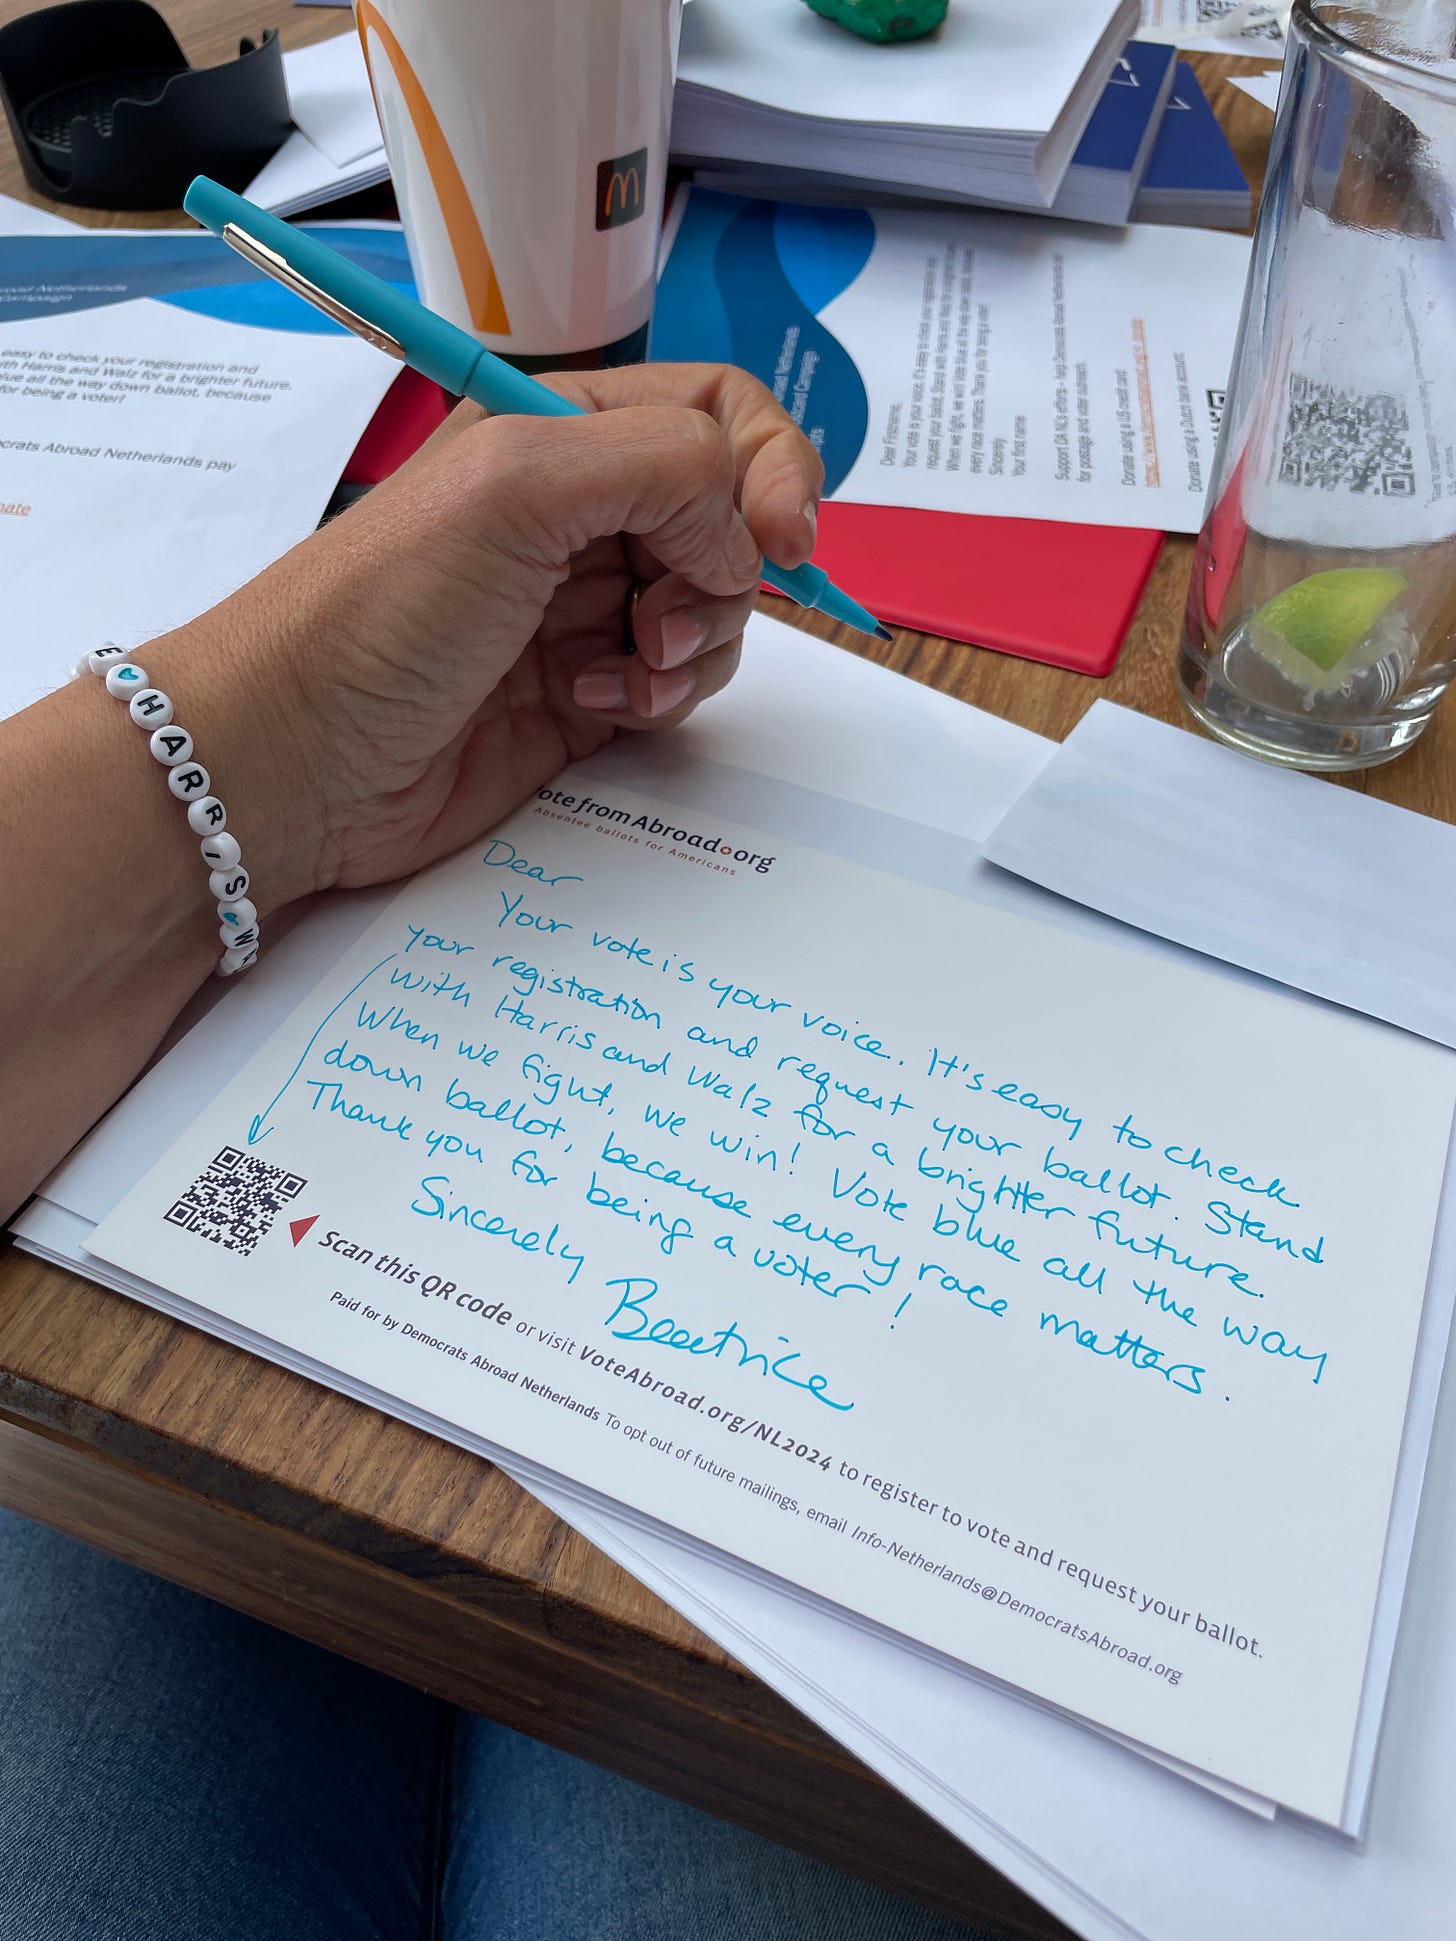 m
road Netherlands
Campaign
easy to check your registration and
th Harris and Walz for a brighter future.
blue all the way down ballot, because
for being a voter!
ocrats Abroad Netherlands pay
nate
Netherlands
stcard Campaign
Dear Firstname,
Your vote is your voice. It's easy to check your registration and
request your ballot. Stand with Harris and Walz for a brighter future.
When we fight, we win! Vote blue all the way down ballot, because
every race matters. Thank you for being a voter!
Sincerely
Your first name
Support DA NL's efforts - help Democrats Abroad Netherlands pay
for postage and voter outreach.
Donate using a US credit card
Donate using a Dutch bank account:
E HARRIS W
VotefromAbroad.org
Absentee ballots for Americans
Dear
Your vote is your voice. It's easy to check
your registration and request your ballot. Stand
with Harris and Walz for a brighter future.
When we fight, we win! Vote blue all the way
down ballot, because every race matters.
Thank you for being a voter!
Sincerely
Beatrice
Scan this QR code or visit VoteAbroad.org/NL2024 to register to vote and request your ballot.
Paid for by Democrats Abroad Netherlands To opt out of future mailings, email Info-Netherlands@DemocratsAbroad.org